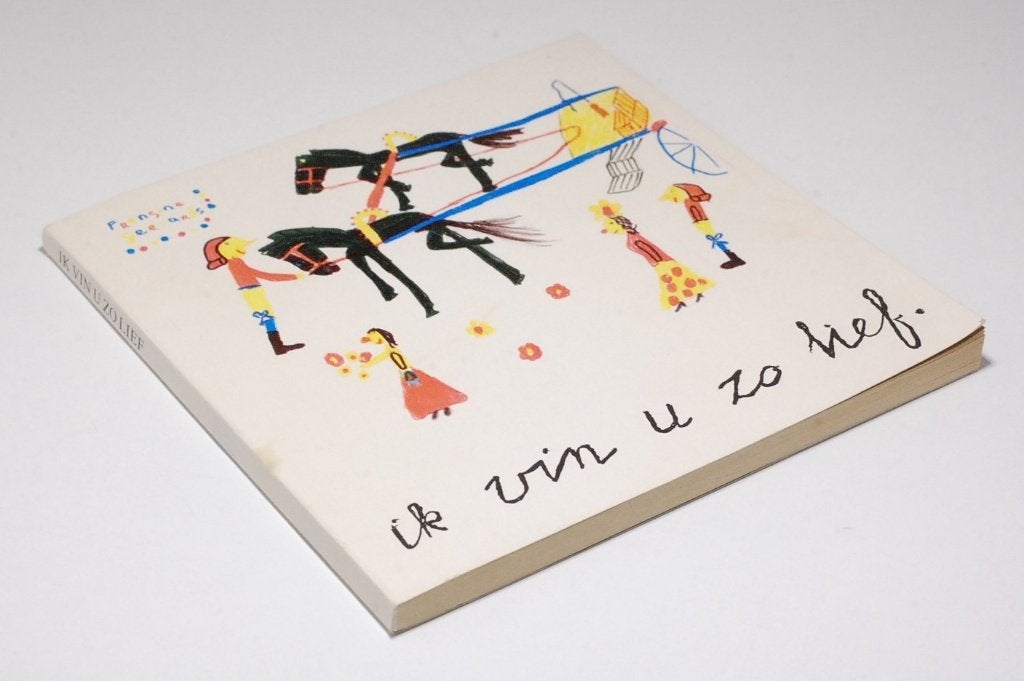 IK VIN U ZO LIEF
ik vin u zo lief.